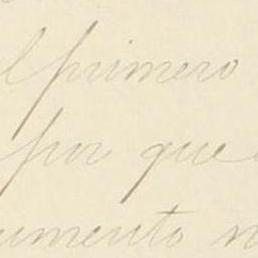 el primero
por que
umento n